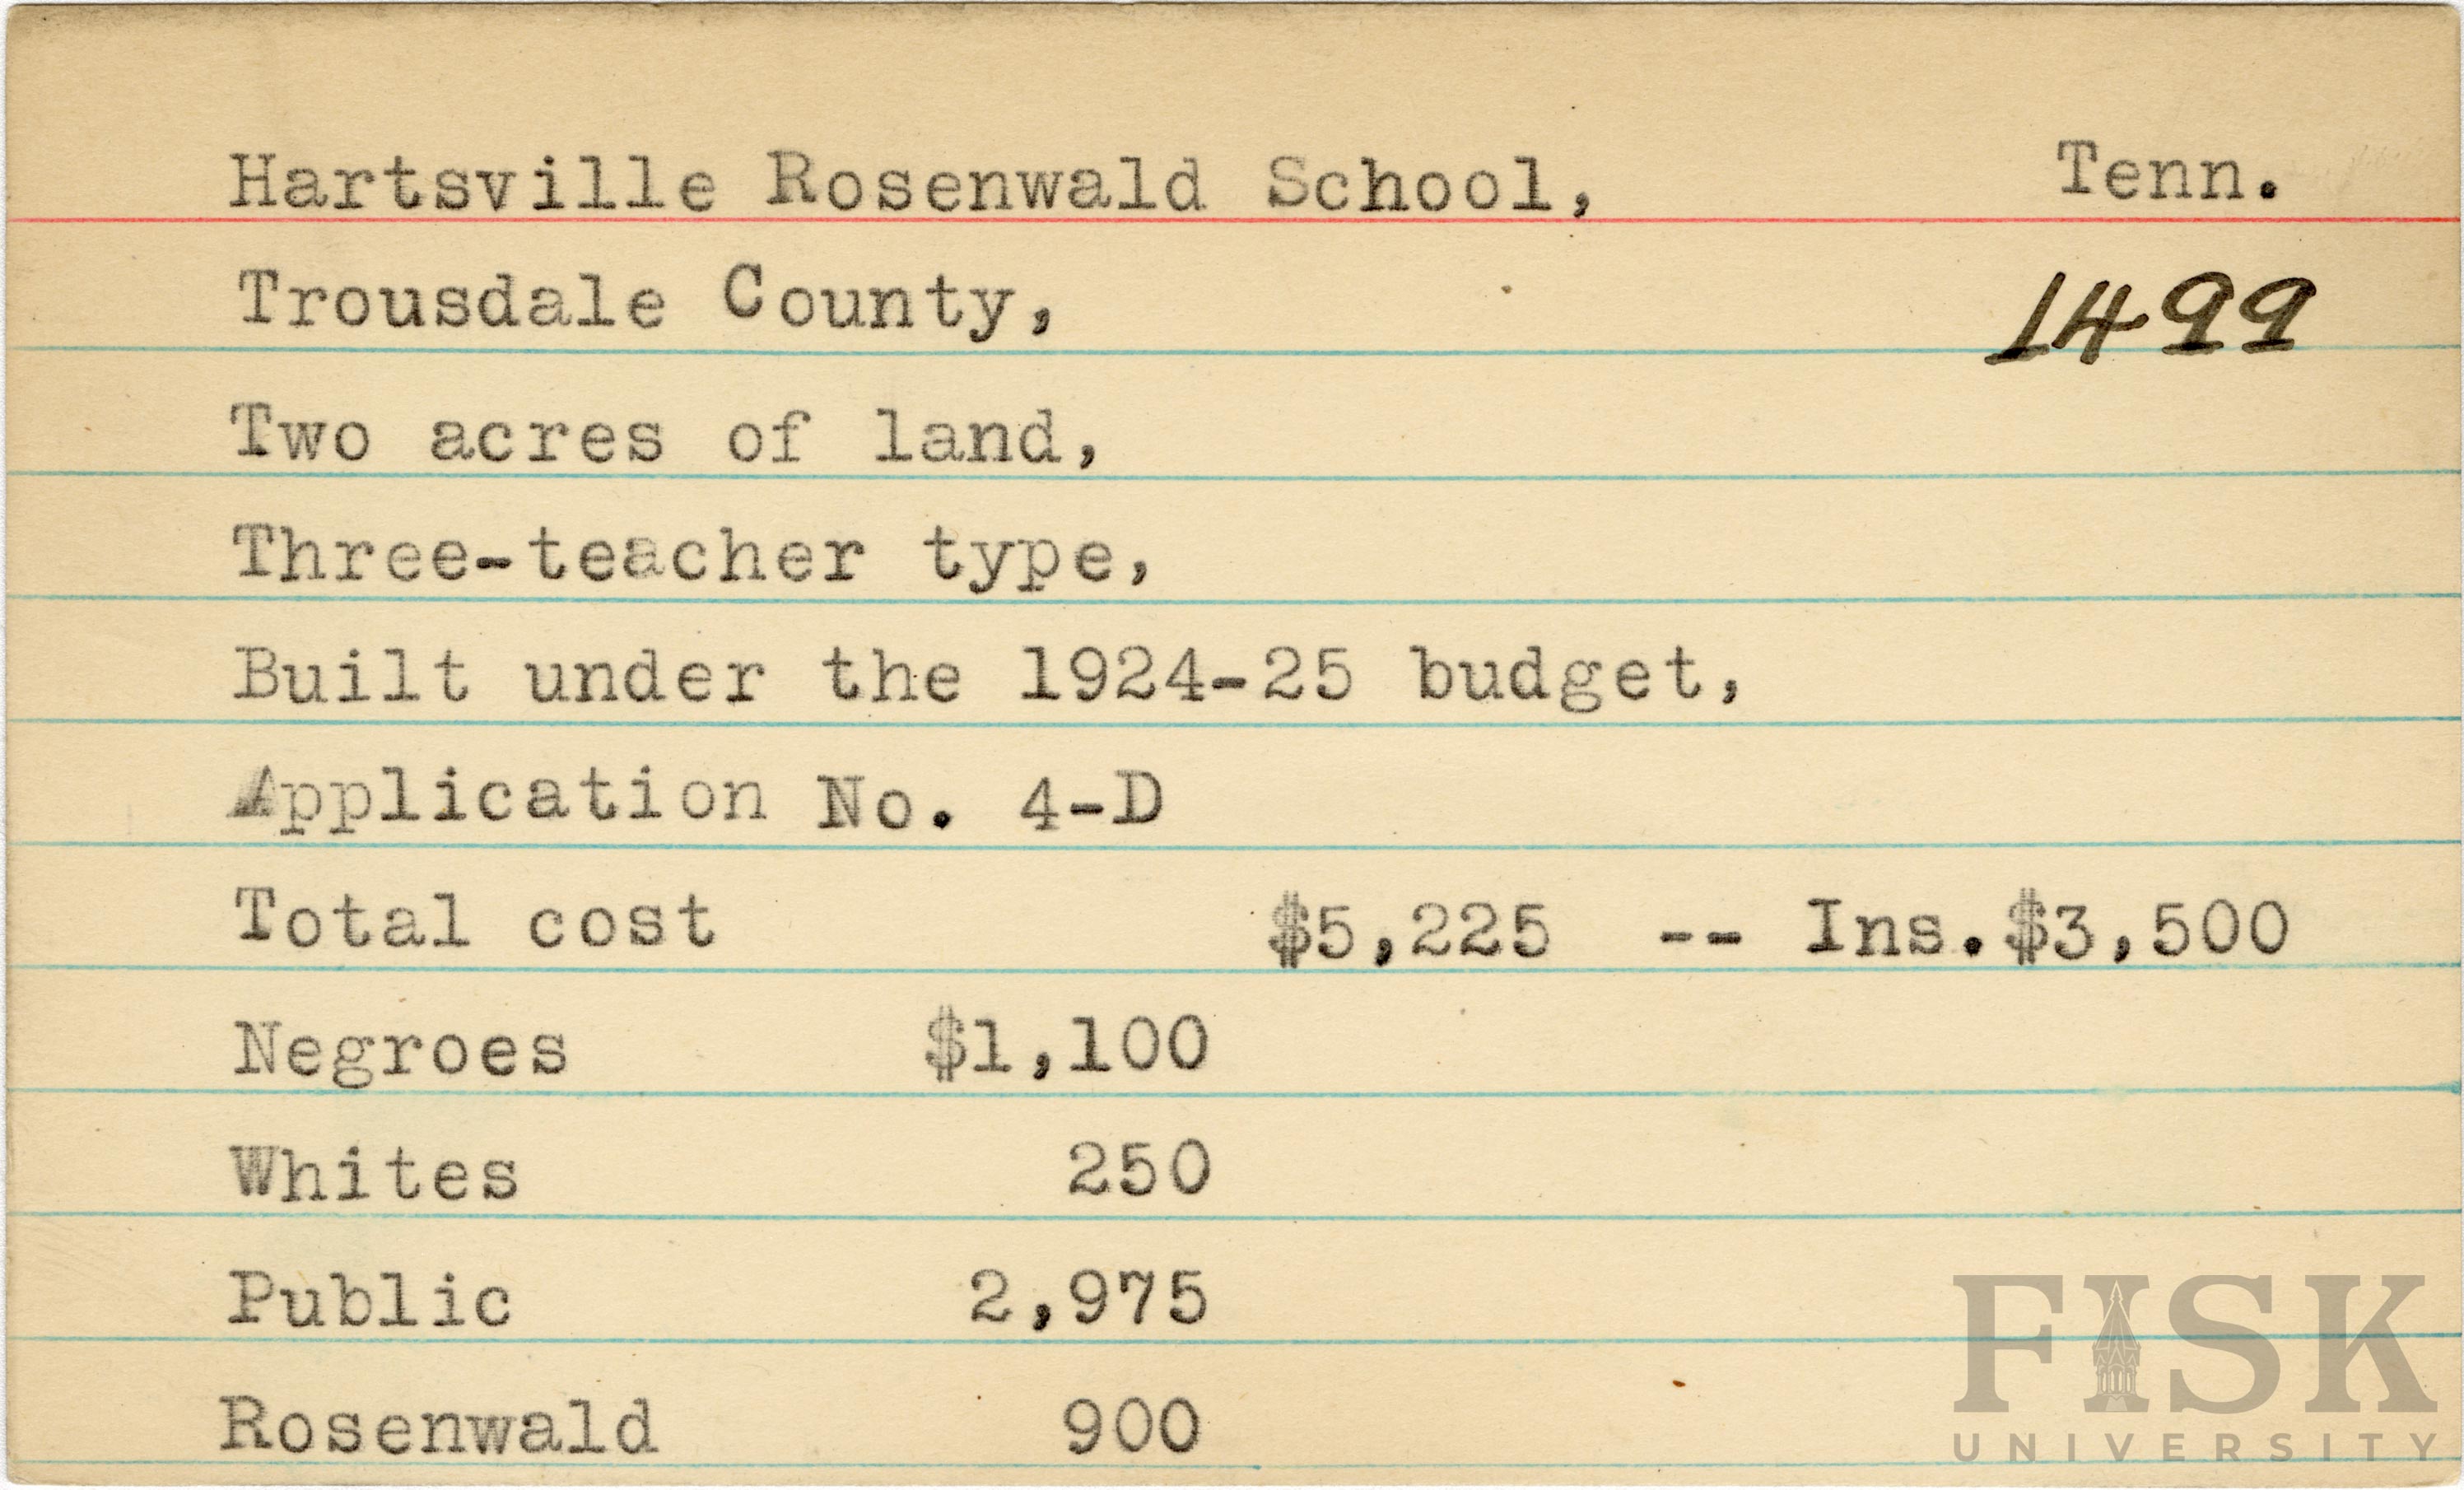 Hartsville Rosenwald School, Tenn.
Trousdale County, 1499
Two acres of land,
Three-teacher type,
Built under the 1924-25 budget,
Application No. 4-D
Total cost $5,225 -- Ins.$3,500
Negroes $1,100
Whites 250
Public 2,975
Rosenwald 900
FISK
UNIVERSITY